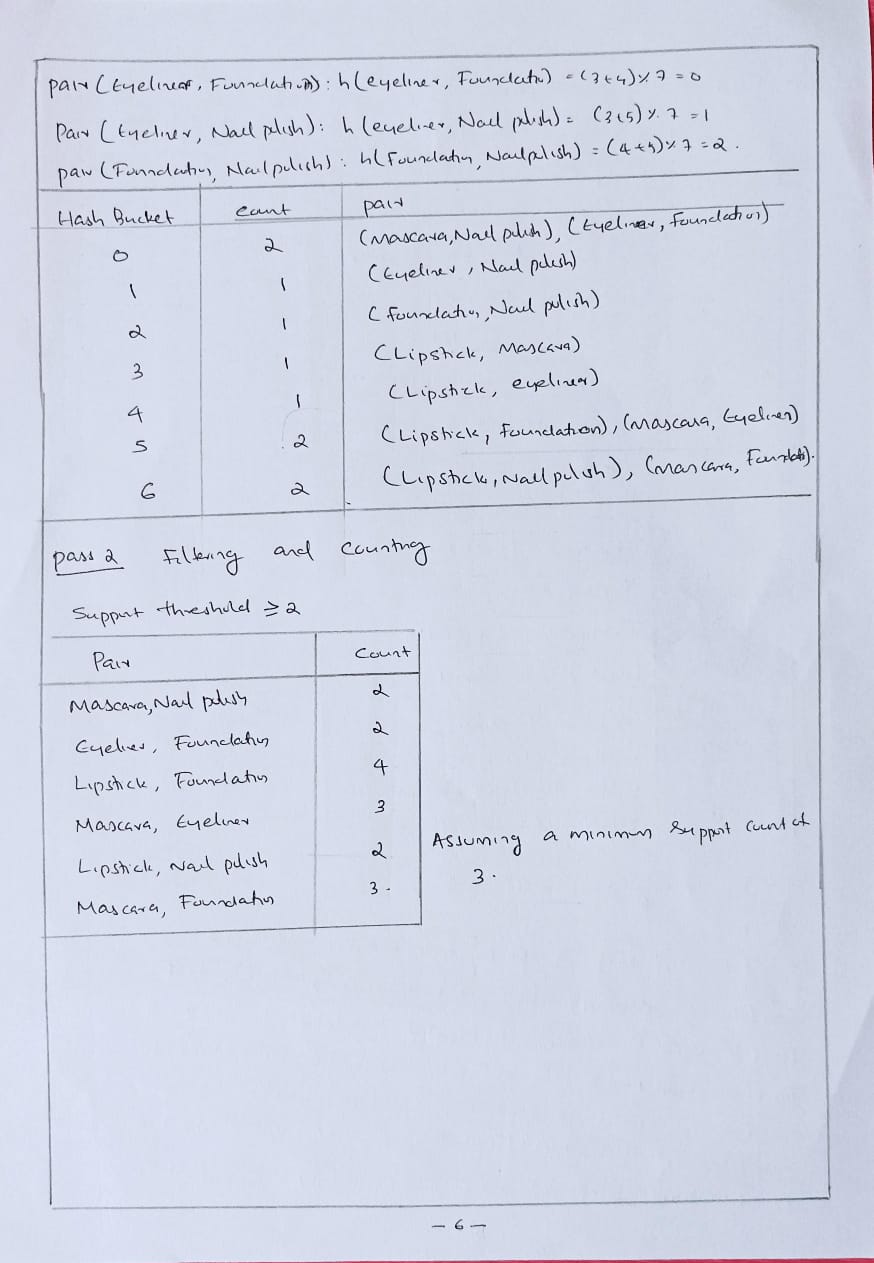 pair (Eyeliner, Foundation) : h(eyeliner, Foundatio) = (3+4)% 7 = 0
Pair (Eyeliner, Nail polish) : h (eyeliner, Nail polish) = (3+5) %. 7 = 1
pair (Foundation, Nail polish) : h(Foundation, Nail polish) = (4+5)% 7 = 2.
Hash Bucket count pair
0 2 (Mascara, Nail polish), (Eyeliner, Foundation)
1 1 (Eyeliner, Nail polish)
2 1 (foundation, Nail polish)
3 1 (Lipstick, Mascara)
4 1 (Lipstick, eyeliner)
5 2 (Lipstick, foundation), (Mascara, Eyeliner)
6 2 (Lipstick, Nail polish), (Mascara, Foundati).
pass 2 Filtering and Counting
Support threshold ≥ 2
Pair Count
Mascara, Nail polish 2
Eyeliner, Foundation 2
Lipstick, Foundation 4
Mascara, Eyeliner 3
Lipstick, Nail polish 2
Mascara, Foundation 3.
Assuming a minimum support count of
3.
- 6 -